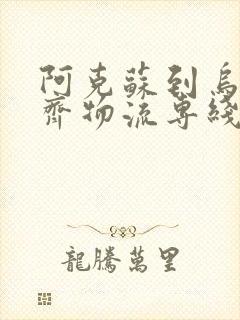 阿克蘇到烏
齊物流専綫
龍騰萬里